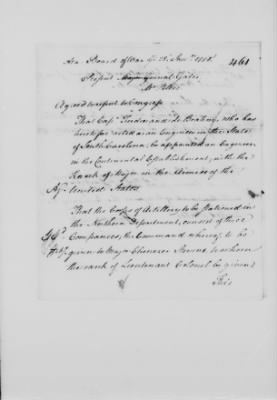 At a Board of War &c 23d Jany 1778
461
Present Major General Gates
Mr Peters
Agreed to report to Congress
That Capt Ferdinand de Brahm, who has
heretofore acted as an Engineer in the State
of South Carolina, be appointed an Engineer
in the Continental Establishment, with the
Rank of Major in the Armies of the
Agd United States
That the Corps of Artillery to be stationed in
the Northern Department, consist of three
Companies, the Command whereof to be
given to Major Ebenezer Stevens to whom
the rank of Lieutenant Colonel be given;
This